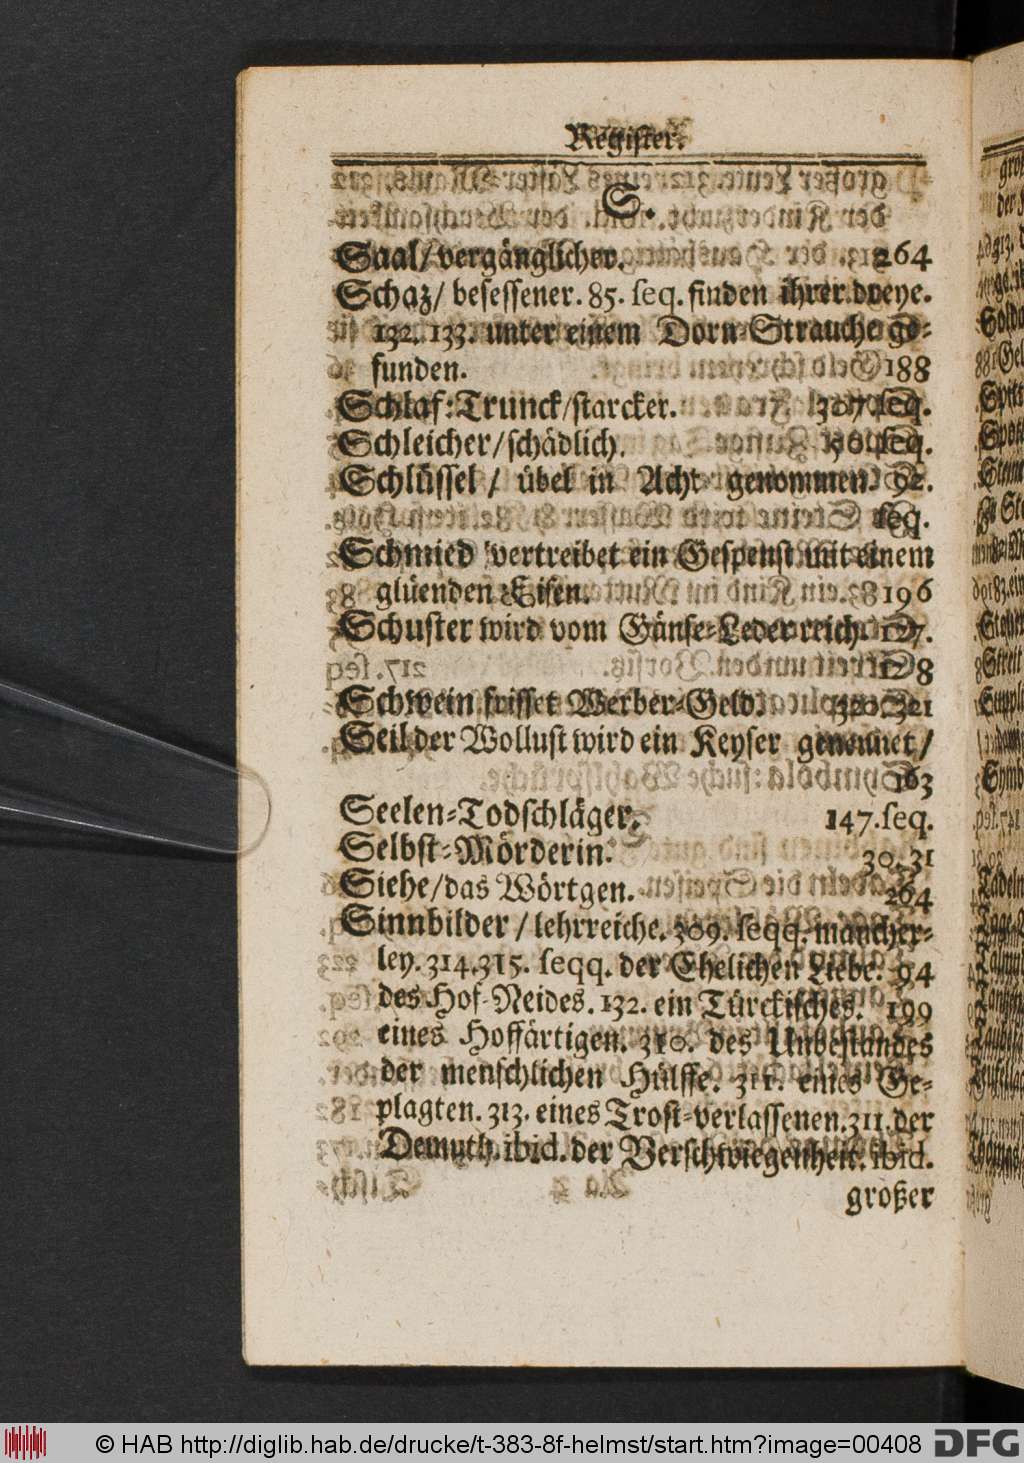 Register.
S.
Saal/ vergänglicher. 264
Schaz/ besessener. 85. seq. finden ihrer dreye.
132. 133. unter einem Dorn-Strauche ge-
funden. 188
Schlaf-Trunck/starcker. seq.
Schleicher/schädlich. seq.
Schlüssel / übel in Acht genommen. 92.
seq.
Schmied vertreibet ein Gespenst mit einem
glüenden Eisen. 196
Schuster wird vom Gänse-Leder reich. 127.
128
Schwein frisset Werber-Geld. 320. 321
Seil der Wollust wird ein Keyser genennet/
163
Seelen-Todschläger. 147.seq.
Selbst-Mörderin. 30. 31
Siehe/das Wörtgen. 264
Sinnbilder / lehrreiche. 309. seqq. mancher-
ley. 314.315. seqq. der Ehelichen Liebe. 94
des Hof-Neides. 132. ein Türckisches. 199
eines Hoffärtigen. 310. des Unbestandes
der menschlichen Hülffe. 311. eines Ge-
plagten. 313. eines Trost-verlassenen.311.der
Demuth. ibid. der Verschwiegenheit. ibid.
großer
© HAB http://diglib.hab.de/drucke/t-383-8f-helmst/start.htm?image=00408
DFG